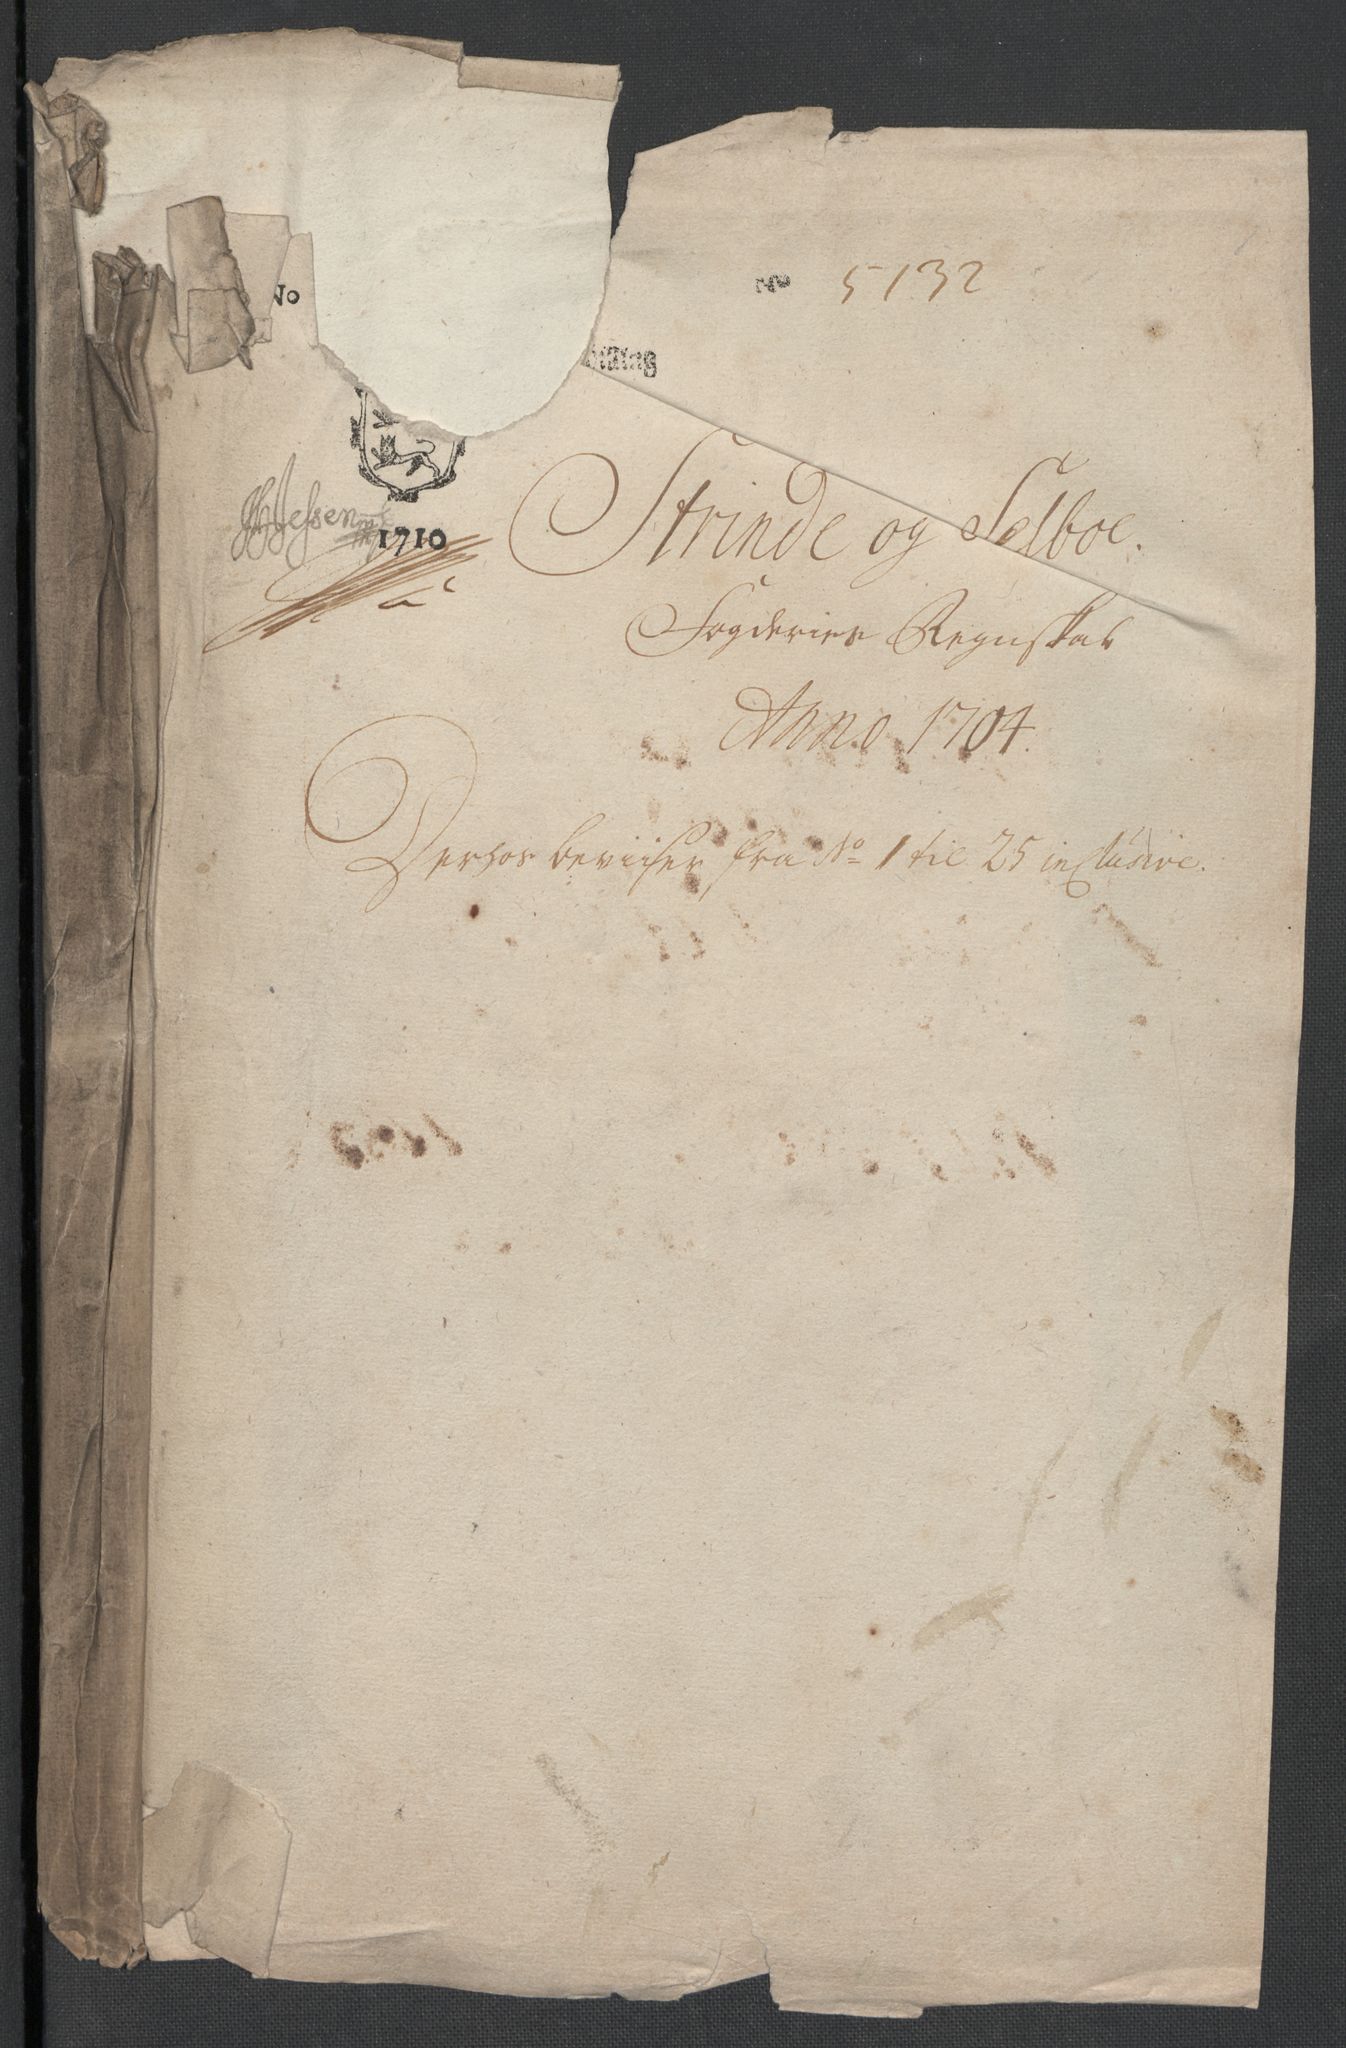 No
No 5132
HJessen
1710
Strinde og Selboe.
Fogderies Regnskab
Anno 1704.
Derhos beviiser fra No 1 til 25 inclusive.